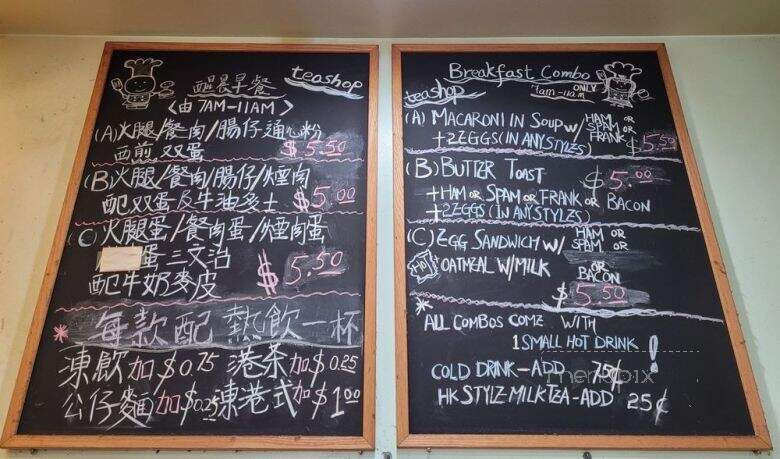 醒晨早餐
teashop
<由 7AM-11AM>
(A)火腿/餐肉/腸仔通心粉
西煎双蛋 $5.50
(B)火腿/餐肉/腸仔/煙肉
配双蛋及牛油多士 $5.00
(C)火腿蛋/餐肉蛋/煙肉蛋
蛋三文治
配牛奶麥皮 $5.50
* 每款配熱飲一杯
凍飲加$0.75 港茶加$0.25
公仔麵加$0.25 凍港式加$1.00
Breakfast Combo
teashop 7am-11am ONLY
(A) MACARONI IN SOUP W/ HAM OR
SPAM OR
FRANK
+2EGGS (IN ANY STYLES) $5.50
(B) BUTTER TOAST $5.00
+HAM OR SPAM OR FRANK OR BACON
+2EGGS (IN ANY STYLES)
(C) EGG SANDWICH W/ HAM OR
SPAM OR
OATMEAL W/MILK
OR
BACON
$5.50
* ALL COMBOS COME WITH
1 SMALL HOT DRINK!
COLD DRINK-ADD 75¢
HK STYLE MILK TEA-ADD 25¢
menupix